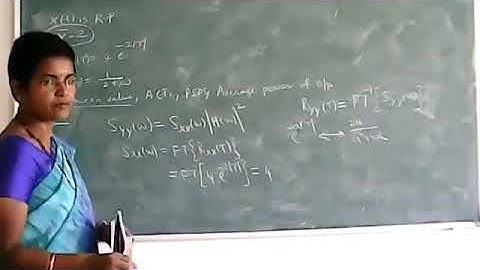 X(t) is R.P
X̄ = 2
(τ) = 4 e^{-2|τ|}
= 1/(2+jω)
mean value, ACF, PSD, Average power of o/p
S_yy(ω) = S_xx(ω)|H(ω)|²
S_xx(ω) = FT{R_xx(τ)}
= FT[4 e^{-2|τ|}] = 4
R_yy(τ) = FT^{-1}{S_yy(ω)}